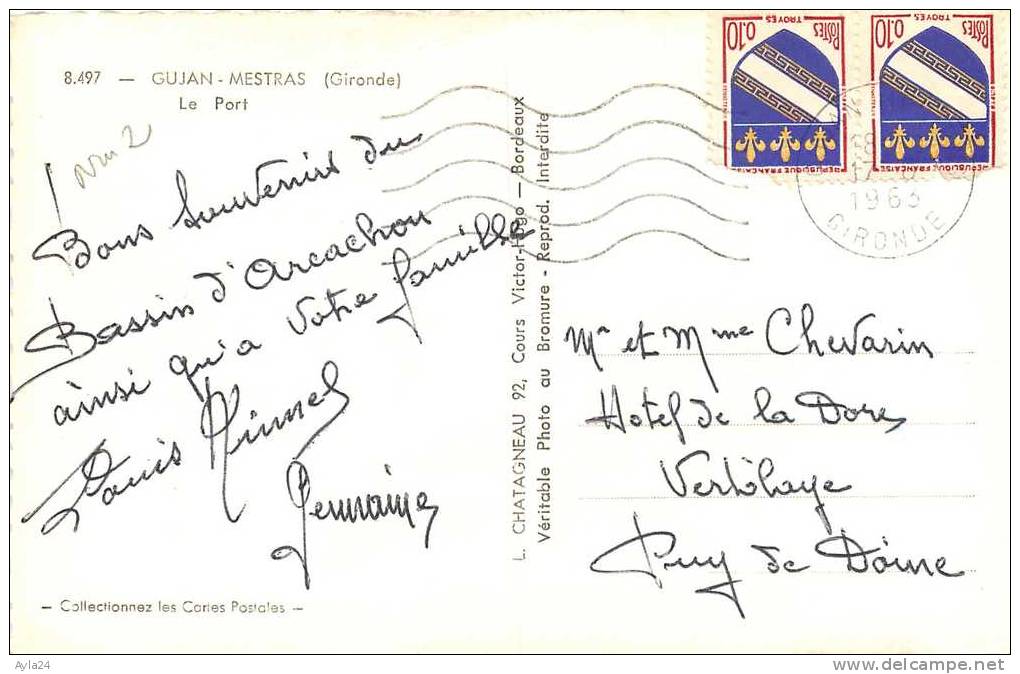 8.497 — GUJAN - MESTRAS (Gironde)
Le Port
Bons souvenirs du
Bassin d'Arcachon
ainsi qu'a votre famille
Louis
Germaine
— Collectionnez les Cartes Postales —
L. CHATAGNEAU 92, Cours Victor-Hugo — Bordeaux
Véritable Photo au Bromure - Reprod. Interdite
0,10 POSTES
TROYES
REPUBLIQUE FRANÇAISE
0,10 POSTES
TROYES
REPUBLIQUE FRANÇAISE
1963
GIRONDE
Mr et Mme Chevarin
Hotel de la Dore
Vertolaye
Puy de Dôme
Ayla24
delcampe.net